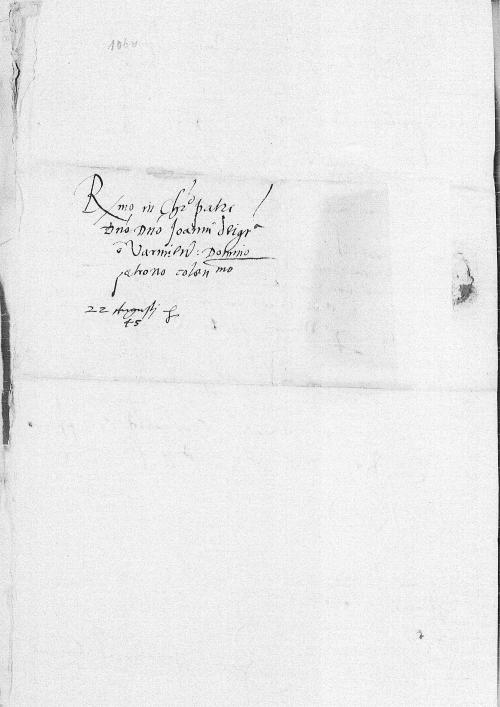 Rmo in Chro patre
Dno Dno Joanni Dei gra
Varmien: Domino
patrono colen mo
22 Augusti
45